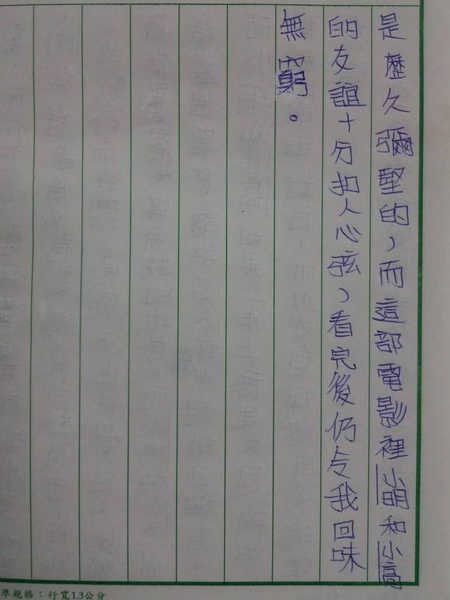 是歷久彌堅的，而這部電影裡小明和小高
的友誼十分扣人心弦，看完後仍令我回味
無窮。
準規格：行寬1.3公分